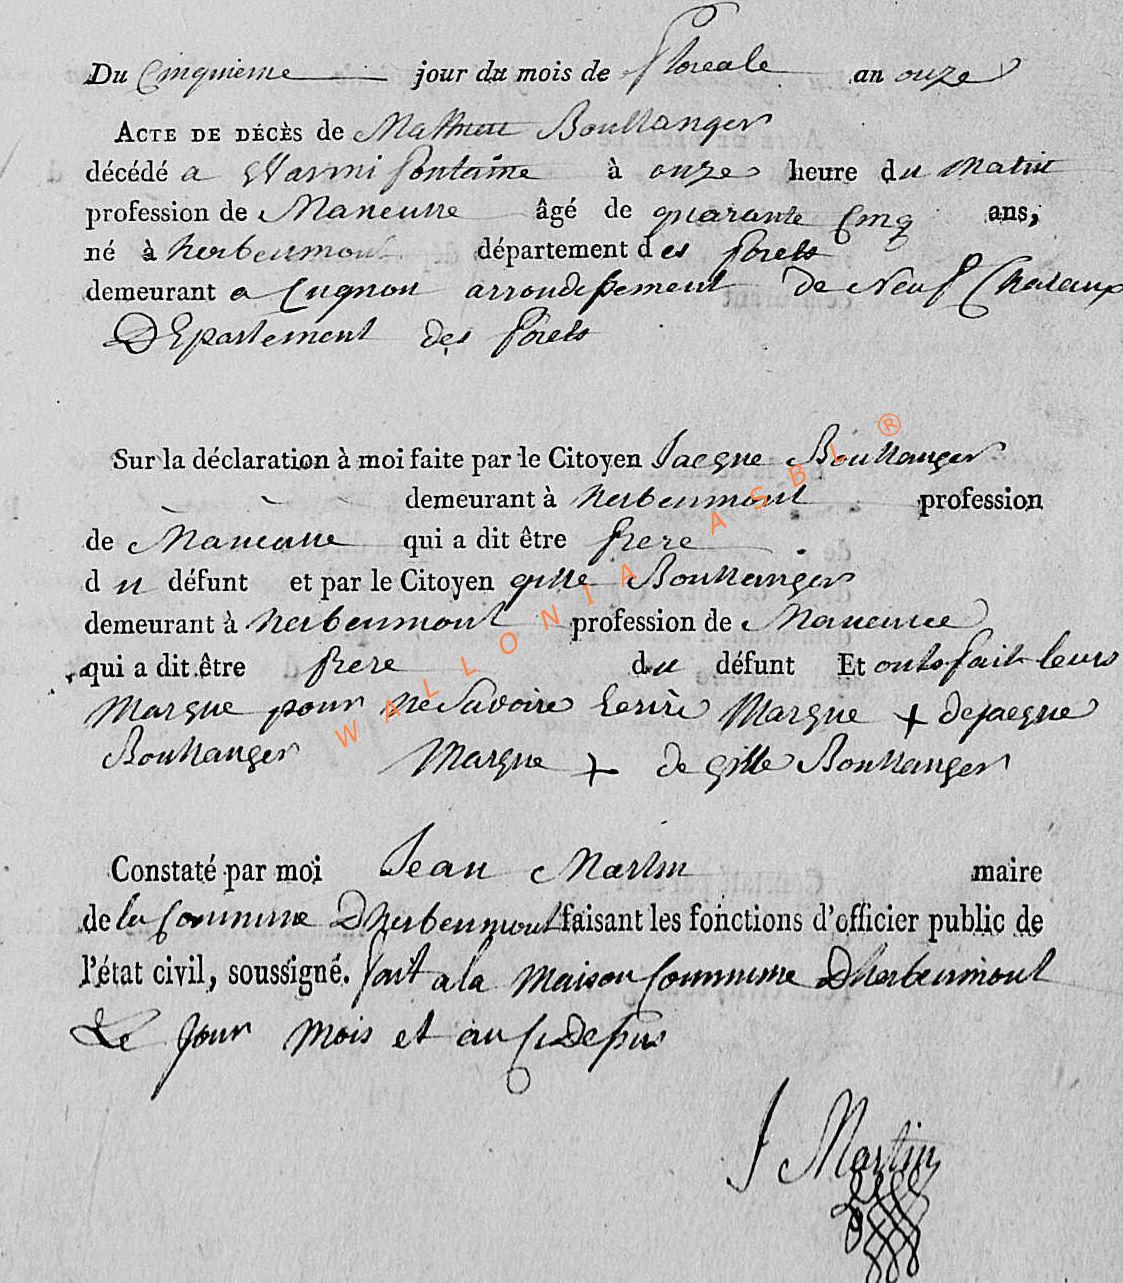 Du Cinquieme jour du mois de floreale an onze
ACTE DE DÉCÈS de Mathieu Boullanger
décédé a Warmifontaine à onze heure du matin
profession de Maneuvre âgé de quarante Cinq ans,
né à herbeumont département des forets
demeurant a Cugnon arrondissement de Neuf Chataux
Departement des forets
Sur la déclaration à moi faite par le Citoyen Jacque Boullanger
demeurant à herbeumont profession
de Maneuvre qui a dit être frere
du défunt et par le Citoyen gille Boullanger
demeurant à herbeumont profession de Maneuvre
qui a dit être frere du défunt Et onts fait leurs
Marque pour ne Savoire Ecrire Marque + de jacque
Boullanger Marque + de gille Boullanger
WALLONIA ASBL ®
Constaté par moi Jean Martin maire
de la Commune Dherbeumont faisant les fonctions d'officier public de
l'état civil, soussigné. fait a la Maison Commune Dherbeumont
Le Jour Mois et an Ci Depus
J Martin